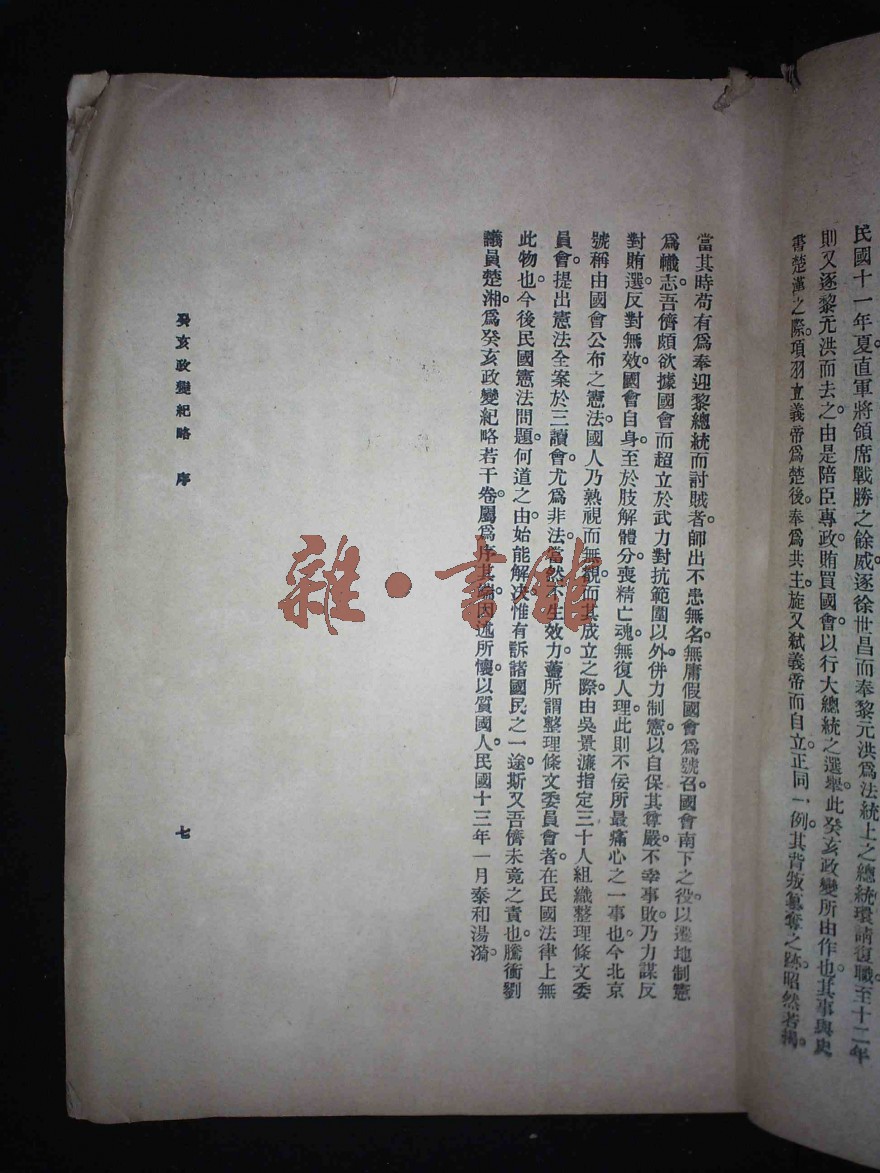 民國十一年夏。直軍將領席戰勝之餘威。逐徐世昌而奉黎元洪爲法統上之總統。環請復職。至十二年
則又逐黎元洪而去之。由是陪臣專政。賄買國會。以行大總統之選舉。此癸亥政變所由作也。其事與史
書楚漢之際。項羽立義帝爲楚後。奉爲共主。旋又弒義帝而自立。正同一例。其背叛篡奪之跡。昭然若揭。
當其時苟有爲奉迎黎總統而討賊者。師出不患無名。無庸假國會爲號召。國會南下之役。以遷地制憲
爲幟志。吾儕頗欲據國會而超立於武力對抗範圍以外。併力制憲。以自保其尊嚴。不幸事敗。乃力謀反
對賄選。反對無效。國會自身。至於肢解體分。喪精亡魂。無復人理。此則不佞所最痛心之一事也。今北京
號稱由國會公布之憲法。國人乃熟視而無覩。而其成立之際。由吳景濂指定三十人組織整理條文委
員會。提出憲法全案於三讀會。尤爲非法。當然不生效力。蓋所謂整理條文委員會者。在民國法律上無
此物也。今後民國憲法問題。何道之由。始能解決。惟有訴諸國民之一途。斯又吾儕未竟之責也。騰衝劉
議員楚湘。爲癸亥政變紀略若干卷。屬爲序其端。因述所懷。以質國人。民國十三年一月泰和湯漪。
癸亥政變紀略 序
七
雜·書館